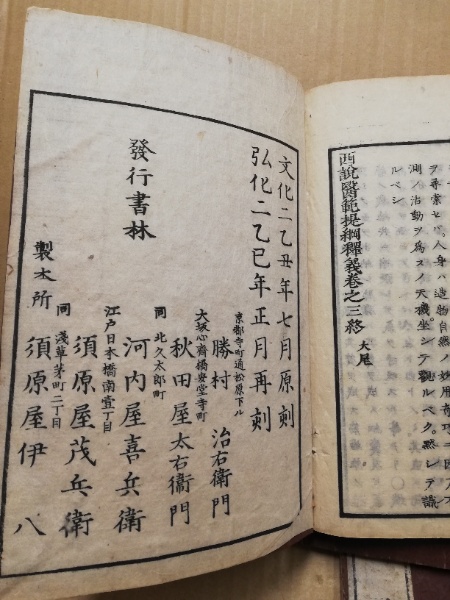 ヲ尋索セハ。人身ハ造物自然ノ妙用奇巧ニ
測ノ活動ヲ爲スノ天機坐シテ觀ルベク。默シテ識
ルベシ
西說醫範提綱釋義卷之三終 大尾
文化二乙丑年七月原刻
弘化二乙巳年正月再刻
發行書林
京都寺町通松原下ル
勝村治右衛門
大坂心齋橋安堂寺町
秋田屋太右衛門
同 北久太郎町
河内屋喜兵衛
江戸日本橋南壹丁目
須原屋茂兵衛
同 淺草茅町二丁目
製本所 須原屋伊八